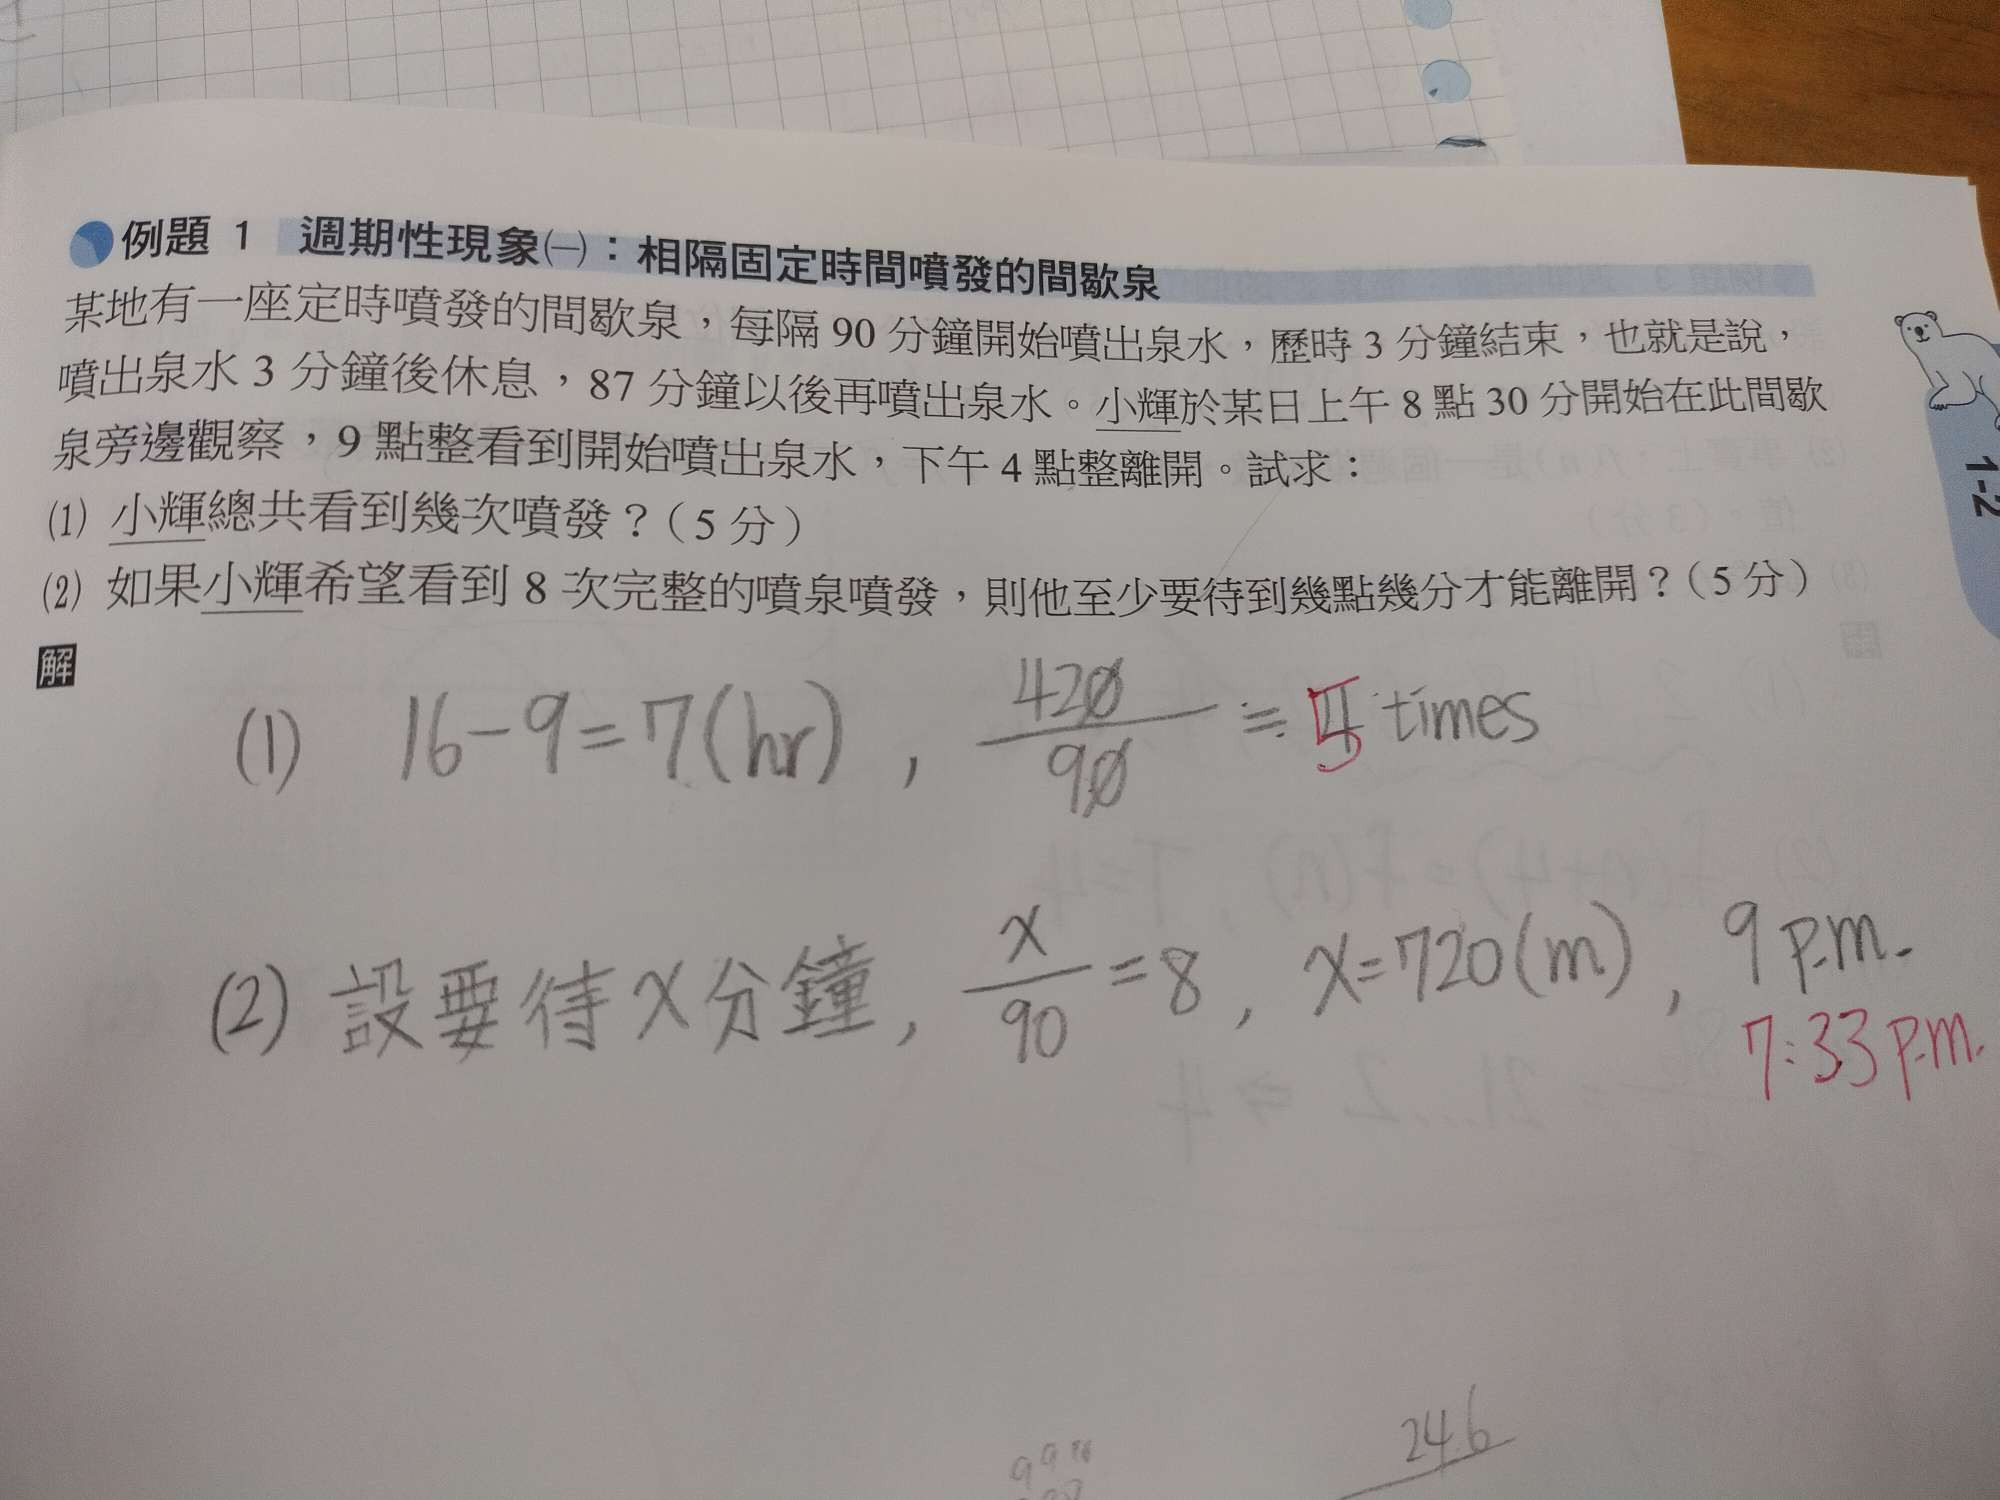 例題 1 週期性現象㈠：相隔固定時間噴發的間歇泉
某地有一座定時噴發的間歇泉，每隔 90 分鐘開始噴出泉水，歷時 3 分鐘結束，也就是說，
噴出泉水 3 分鐘後休息，87 分鐘以後再噴出泉水。小輝於某日上午 8 點 30 分開始在此間歇
泉旁邊觀察，9 點整看到開始噴出泉水，下午 4 點整離開。試求：
⑴ 小輝總共看到幾次噴發？（5 分）
⑵ 如果小輝希望看到 8 次完整的噴泉噴發，則他至少要待到幾點幾分才能離開？（5 分）
1-2
解
(1) 16-9=7(hr) , 420/90 ≒ 5 times
(2) 設要待 x 分鐘, x/90 = 8 , x=720(m) , 9 p.m.
7:33 p.m.
246